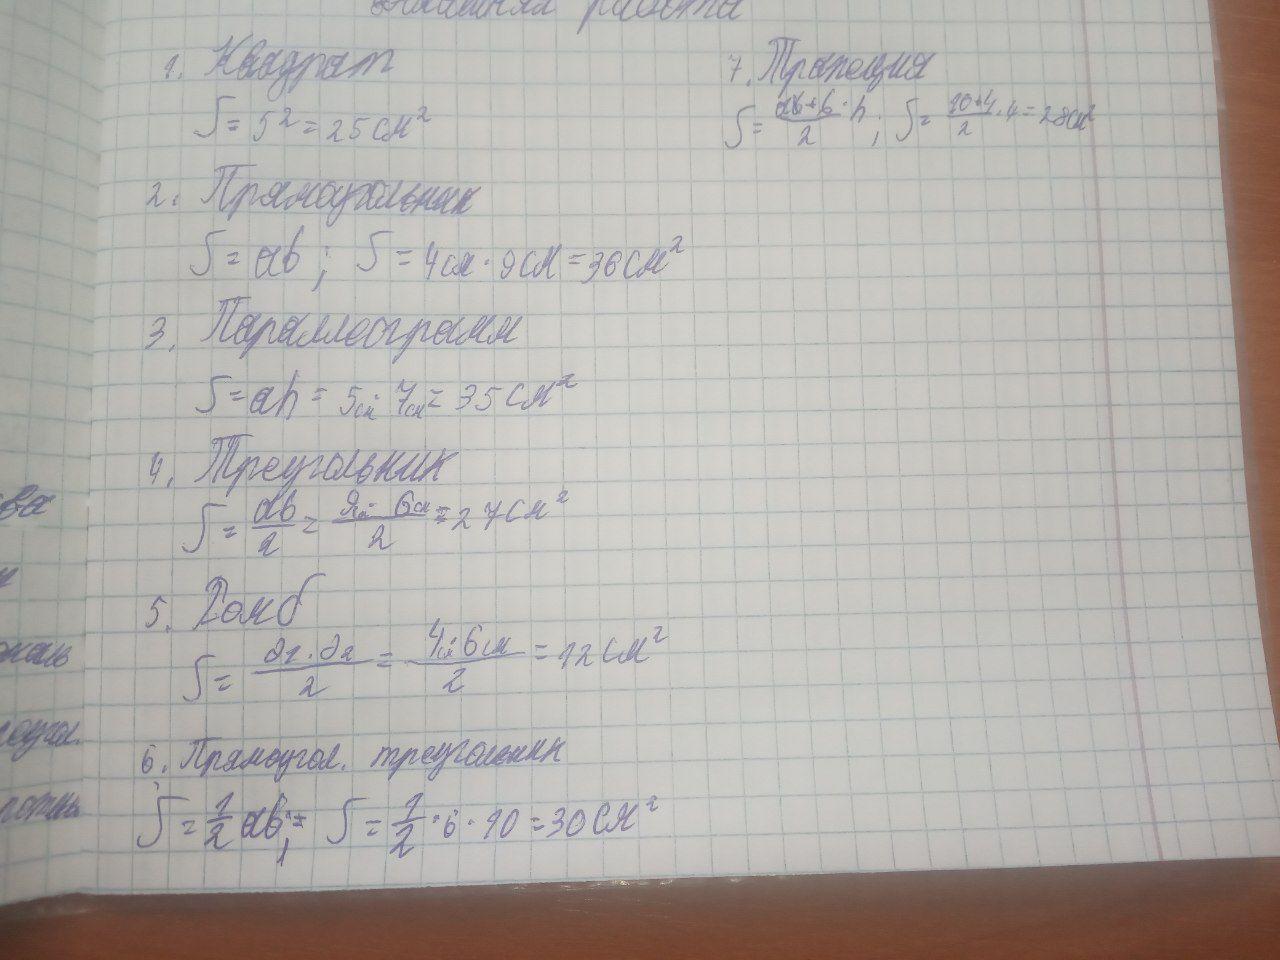 Домашняя работа
1. Квадрат
S = 5² = 25 см²
2. Прямоугольник
S = ab ; S = 4см · 9см = 36 см²
3. Параллеограмм
S = ah = 5см · 7см = 35 см²
4. Треугольник
S = ab/2 = 9см · 6см/2 = 27 см²
5. Ромб
S = д1 · д2/2 = 4см · 6см/2 = 12 см²
6. Прямоугол. треугольник
S = 1/2 ab ; = S = 1/2 · 6 · 10 = 30 см²
7. Трапеция
S = ab+b/2 · h ; S = 10+4/2 · 4 = 28см²